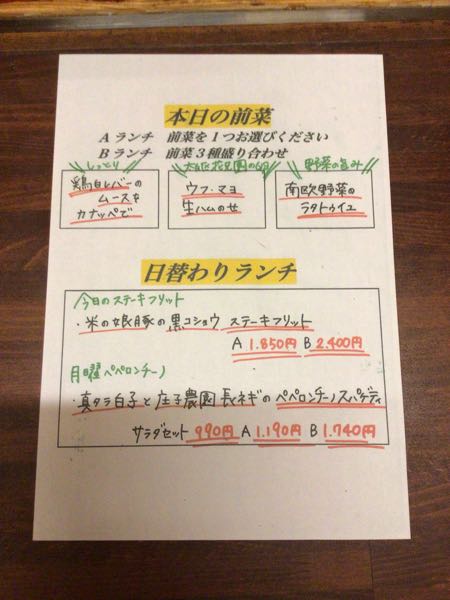 本日の前菜
Aランチ 前菜を1つお選びください
Bランチ 前菜3種盛り合わせ
しっとり
鶏白レバーの
ムースを
カナッペで
花兄園の卵
ウフ・マヨ
生ハムのせ
野菜の旨み
南欧野菜の
ラタトゥイユ
日替わりランチ
今日のステーキフリット
・米の娘豚の黒コショウ ステーキフリット
A 1.850円 B 2.400円
月曜ペペロンチーノ
・真タラ白子と庄子農園長ネギのペペロンチーノスパゲティ
サラダセット 990円 A 1.190円 B 1.740円